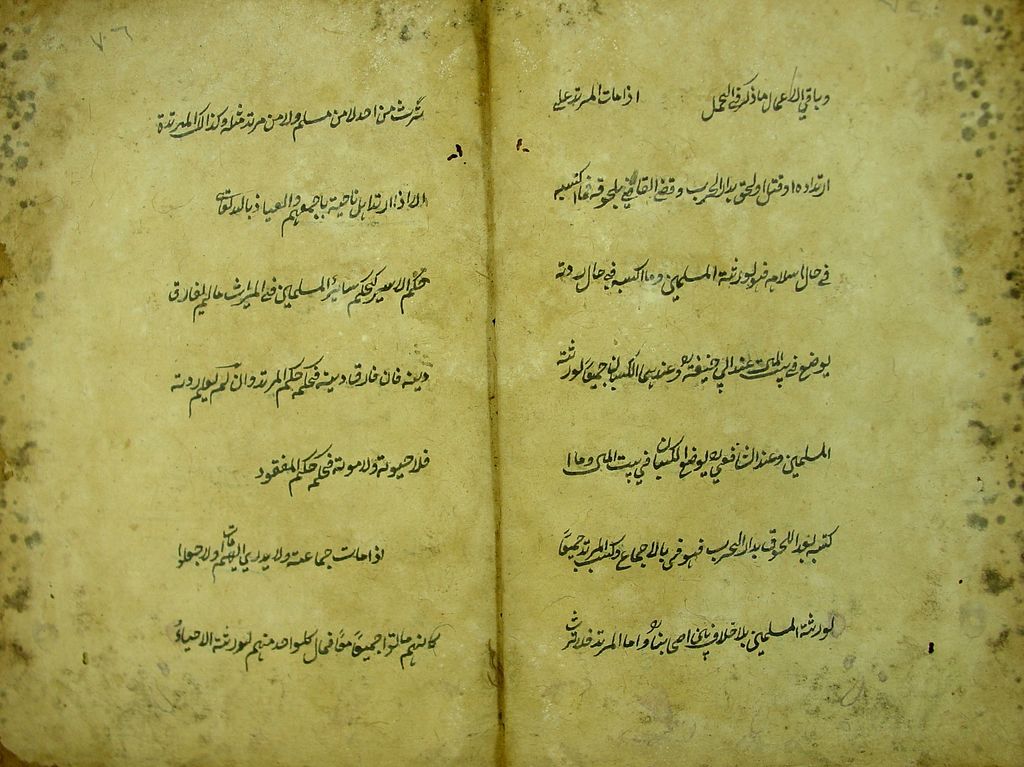 وباقي الاعمال ما ذكر في المجمل اذا مات المرتد على
ارتداده او قتل او لحق بدار الحرب وقضى القاضي بلحوقه فما اكتسبه
في حال اسلامه فهو لورثته المسلمين وما اكتسبه في حال ردته
يوضع في بيت المال عند ابي حنيفة وعندهما الكسبان جميعا لورثته
المسلمين وعند الشافعي يوضع الكسبان في بيت المال وما ا
كتسبه بعد اللحوق بدار الحرب فهو فئ بالاجماع وكسب المرتدة جميعا
لورثته المسلمين بلا خلاف بين اصحابنا واما المرتد فلا يرث
يرث من احد لا من مسلم ولا من مرتد مثله وكذلك المرتدة
الا اذا ارتد اهل ناحية باجمعهم والعياذ بالله تعالى
حكم الاسير كحكم سائر المسلمين في الميراث ما لم يفارق
دينه فان فارق دينه فحكمه حكم المرتد وان لم يعلم ردته
فلا حيوته ولا موته فحكمه حكم المفقود
اذا مات جماعة ولا يدري ايهم مات اولا جعلوا
كانهم ماتوا جميعا معا فمال كل واحد منهم لورثته الاحياء
٧٦